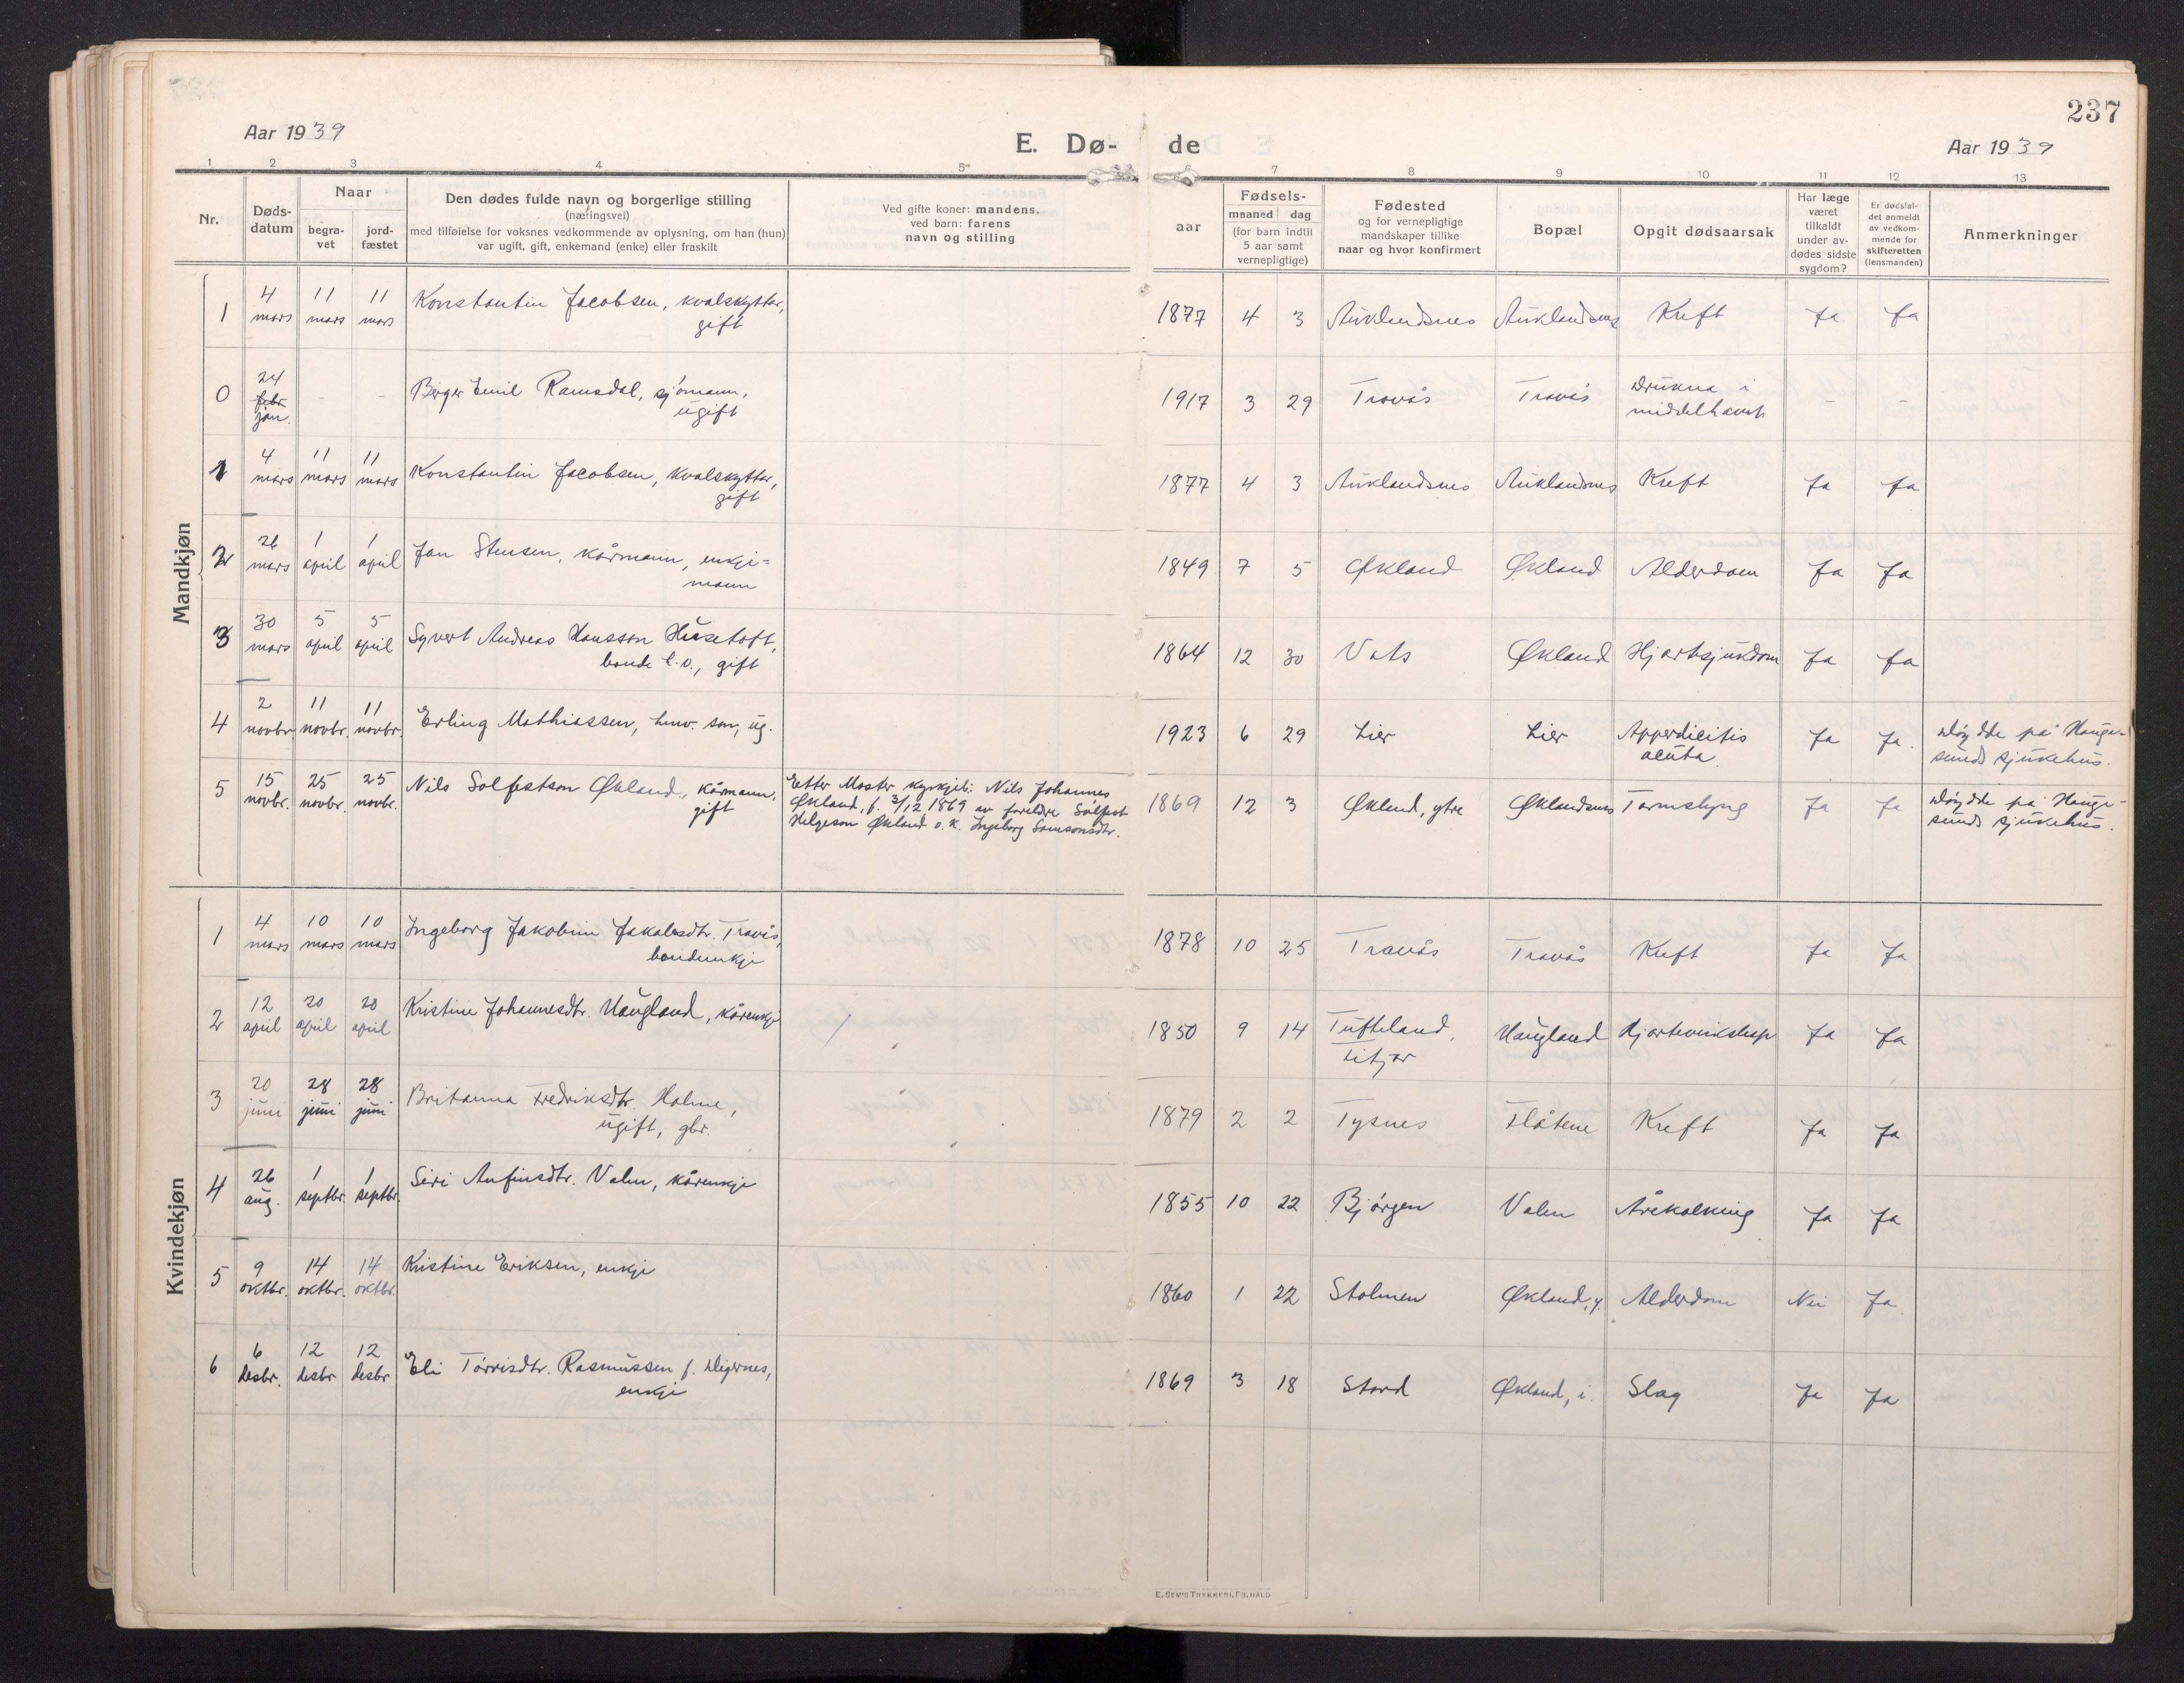 237
Aar 1939
E. Dø-
de
Aar 1939
1 2 3 4 5 7 8 9 10 11 12 13
Nr.
Døds-
datum
Naar
begra-
vet
jord-
fæstet
Den dødes fulde navn og borgerlige stilling
(næringsvei)
med tilføielse for voksnes vedkommende av oplysning, om han (hun)
var ugift, gift, enkemand (enke) eller fraskilt
Ved gifte koner: mandens,
ved barn: farens
navn og stilling
Fødsels-
aar
maaned dag
(for barn indtil
5 aar samt
vernepligtige)
Fødested
og for vernepligtige
mandskaper tillike
naar og hvor konfirmert
Bopæl
Opgit dødsaarsak
Har læge
været
tilkaldt
under av-
dødes sidste
sygdom?
Er dødsfal-
det anmeldt
av vedkom-
mende for
skifteretten
(lensmanden)
Anmerkninger
Mandkjøn
1 4 mars 11 mars 11 mars Konstantin Jacobsen, kvalskyttar, 1877 4 3 Auklandsnes Auklandsnes Kreft Ja Ja
gift
0 24 febr jan. - - Birger Emil Ramsdal, sjömann, 1917 3 29 Trovås Trovås Drukna i - -
ugift middelhavet
1 4 mars 11 mars 11 mars Konstantin Jacobsen, kvalskyttar, 1877 4 3 Auklandsnes Auklandsnes Kreft Ja Ja
gift
2 26 mars 1 april 1 april Jan Stensen, kårmann, enkje= 1849 7 5 Økland Økland Alderdom Ja Ja
mann
3 30 mars 5 april 5 april Syvert Andreas Hansson Husetoft, 1864 12 30 Vats Økland Hjartsjukdom Ja Ja
bonde l.o., gift
4 2 novbr. 11 novbr. 11 novbr. Erling Mathiassen, hmv. son, ug. 1923 6 29 Lier Lier Apperdicitis Ja Ja. Döydde på Hauge-
acuta. sunds sjukehus.
5 15 novbr. 25 novbr. 25 novbr. Nils Solfestson Økland, kårmann, Etter Moster kyrkjeb: Nils Johannes 1869 12 3 Økland, ytre Øklandsnes Tarmslyng Ja Ja Döydde på Hauge-
gift Økland, f. 3/12 1869 av foreldre Solfest sunds sjukehus.
Helgeson Økland o.k. Ingeborg Samsonsdtr.
Kvindekjøn
1 4 mars 10 mars 10 mars Ingeborg Jakobine Jakobsdtr. Trovås, 1878 10 25 Trovås Trovås Kreft Ja Ja
bondeenkje
2 12 april 20 april 20 april Kristine Johannesdtr. Haugland, kårenkje 1850 9 14 Tufteland, Haugland Hjarteveikskap Ja Ja
Fitjar
3 20 juni 28 juni 28 juni Britanna Fredriksdtr. Holme, 1879 2 2 Tysnes Flåtene Kreft Ja Ja
ugift, gbr.
4 26 aug. 1 septbr. 1 septbr. Siri Anfinsdtr. Valen, kårenkje 1855 10 22 Bjørgen Valen Årekalking Ja Ja
5 9 oktbr. 14 oktbr. 14 oktbr. Kristine Eriksen, enkje 1860 1 22 Stolmen Økland, y. Alderdom Nei Ja
6 6 desbr. 12 desbr 12 desbr Eli Torrisdtr. Rasmussen f. Digernes, 1869 3 18 Stord Økland, i. Slag Ja Ja
enkje
E. SEM'S TRYKKERI, FR.HALD